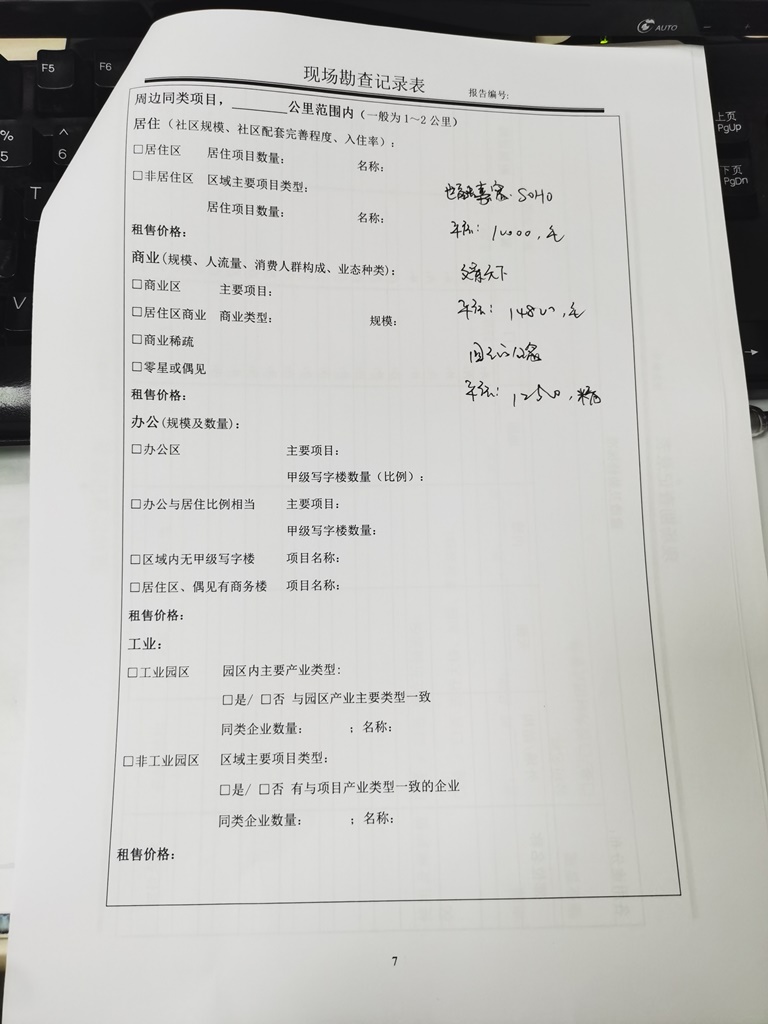 AUTO
F5
F6
%
5
^
6
T
V
上页
PgUp
下页
PgDn
现场勘查记录表
报告编号:
周边同类项目,______公里范围内(一般为1～2公里)
居住(社区规模、社区配套完善程度、入住率):
□居住区 居住项目数量: 名称:
□非居住区 区域主要项目类型: SOHO
居住项目数量: 名称:
租售价格: 年租: 10000,毛
商业(规模、人流量、消费人群构成、业态种类): 天下
□商业区 主要项目:
□居住区商业 商业类型: 规模: 年租: 14800,毛
□商业稀疏
□零星或偶见
租售价格: 年租: 1250,精
办公(规模及数量):
□办公区 主要项目:
甲级写字楼数量(比例):
□办公与居住比例相当 主要项目:
甲级写字楼数量:
□区域内无甲级写字楼 项目名称:
□居住区、偶见有商务楼 项目名称:
租售价格:
工业:
□工业园区 园区内主要产业类型:
□是/ □否 与园区产业主要类型一致
同类企业数量: ;名称:
□非工业园区 区域主要项目类型:
□是/ □否 有与项目产业类型一致的企业
同类企业数量: ;名称:
租售价格:
7